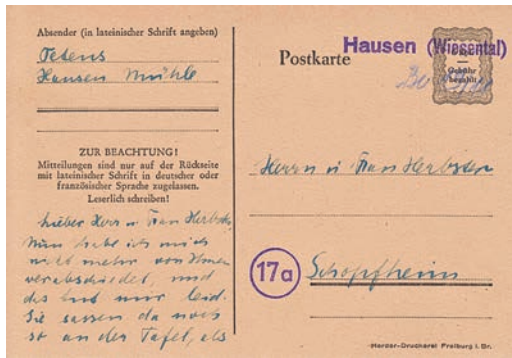 Absender (in lateinischer Schrift angeben)
Petens
Hausen Mühle
ZUR BEACHTUNG!
Mitteilungen sind nur auf der Rückseite
mit lateinischer Schrift in deutscher oder
französischer Sprache zugelassen.
Leserlich schreiben!
Lieber Herr u Frau Herbster,
Nun habe ich mich
nicht mehr von Ihnen
verabschiedet, und
das tut mir leid.
Sie sassen da noch
so an der Tafel, als
Postkarte
Hausen (Wiesental)
Gebühr
bezahlt
Herrn u Frau Herbster
17a Schopfheim
Herder-Druckerei Freiburg i. Br.